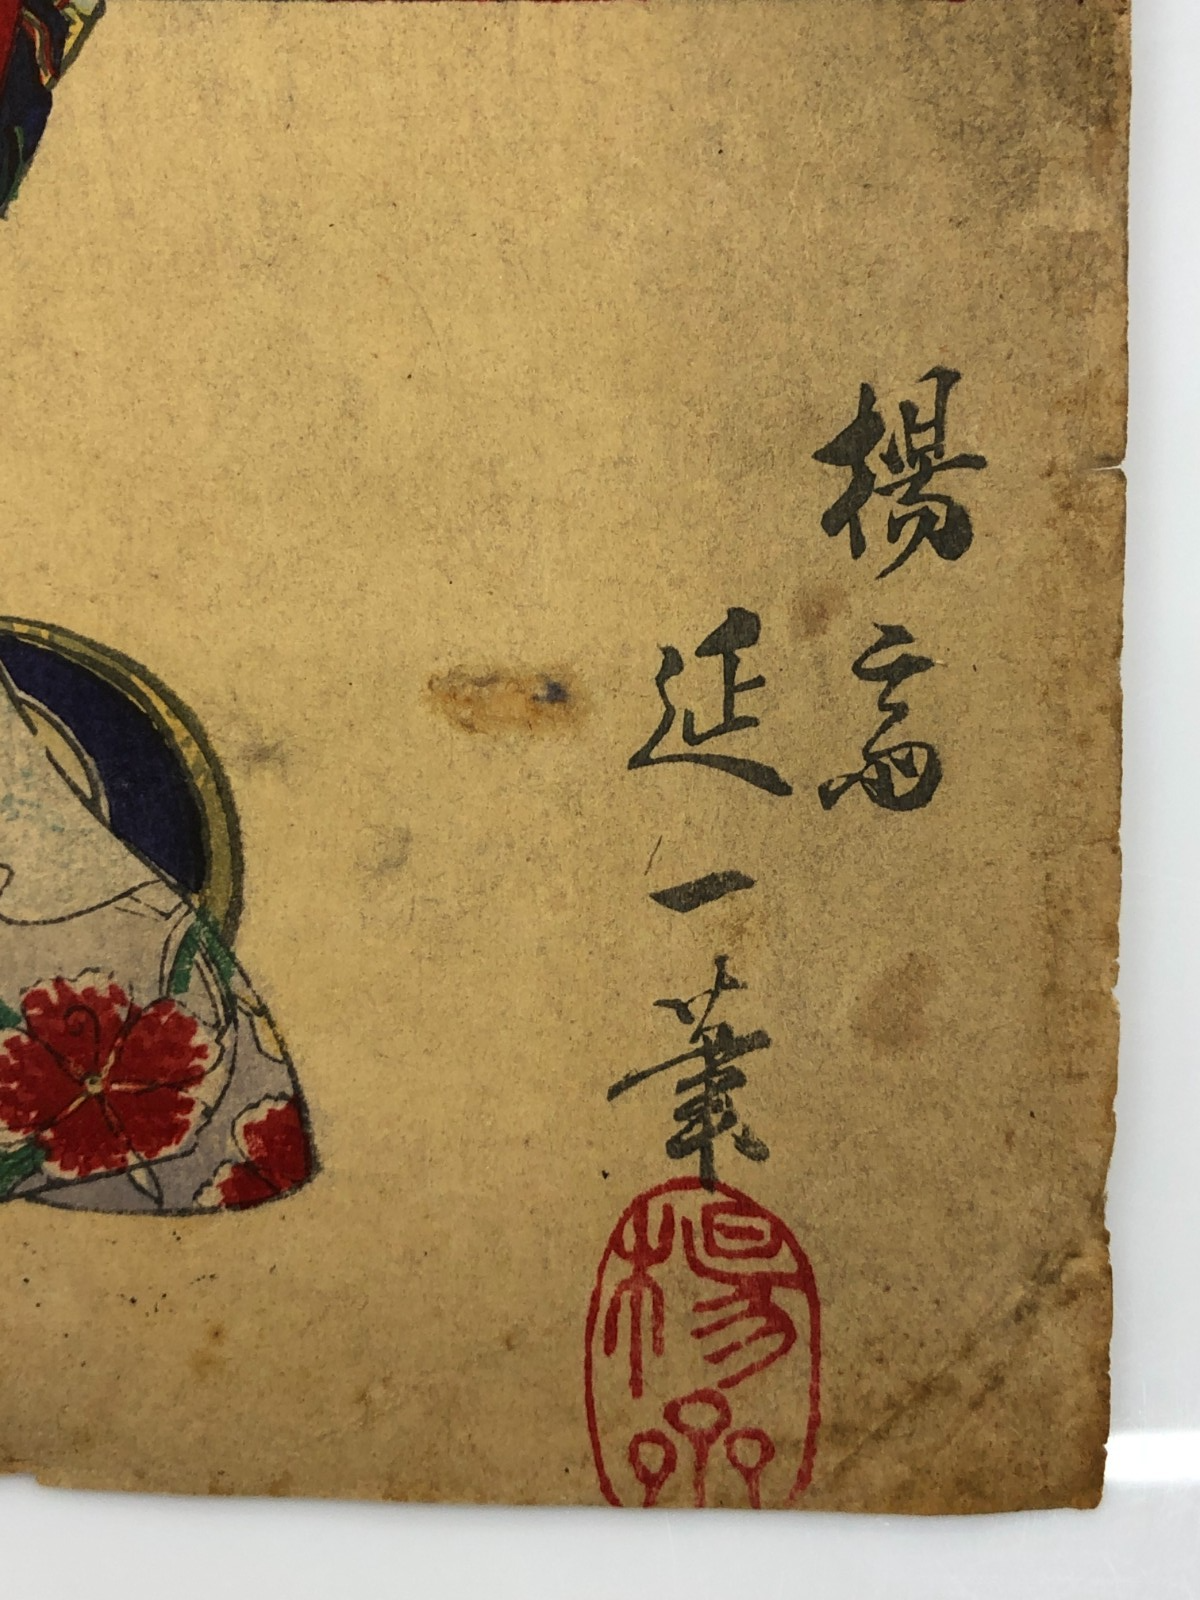 楊斎
延一筆
楊